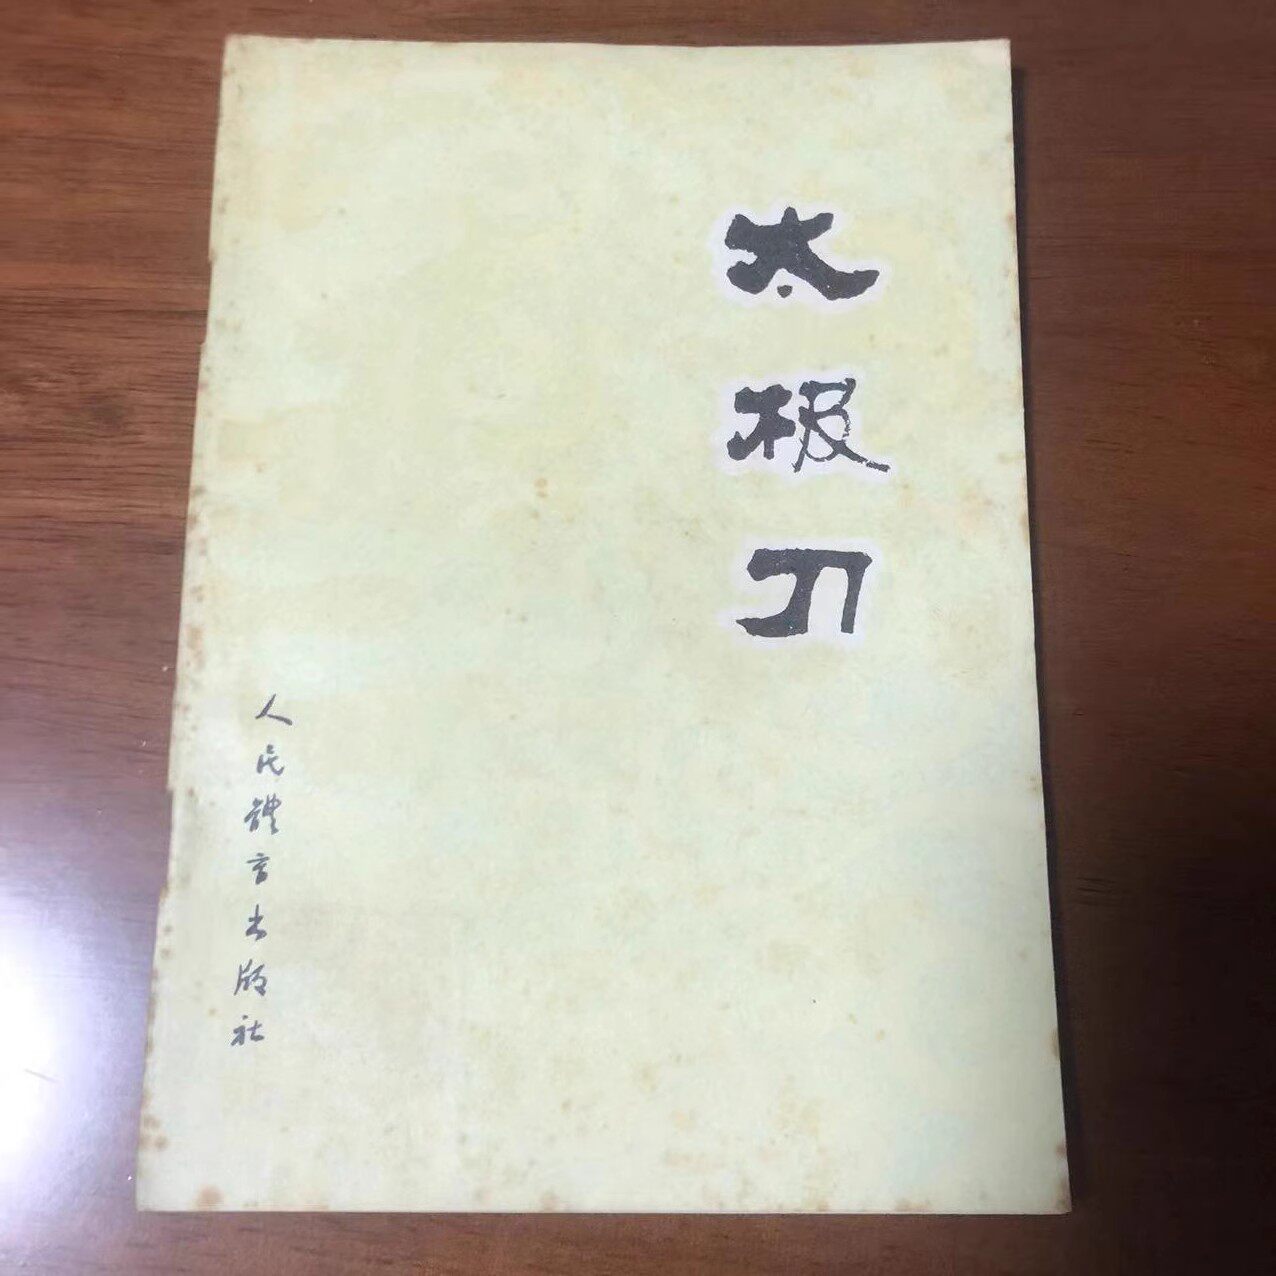 太极刀
人民體育出版社